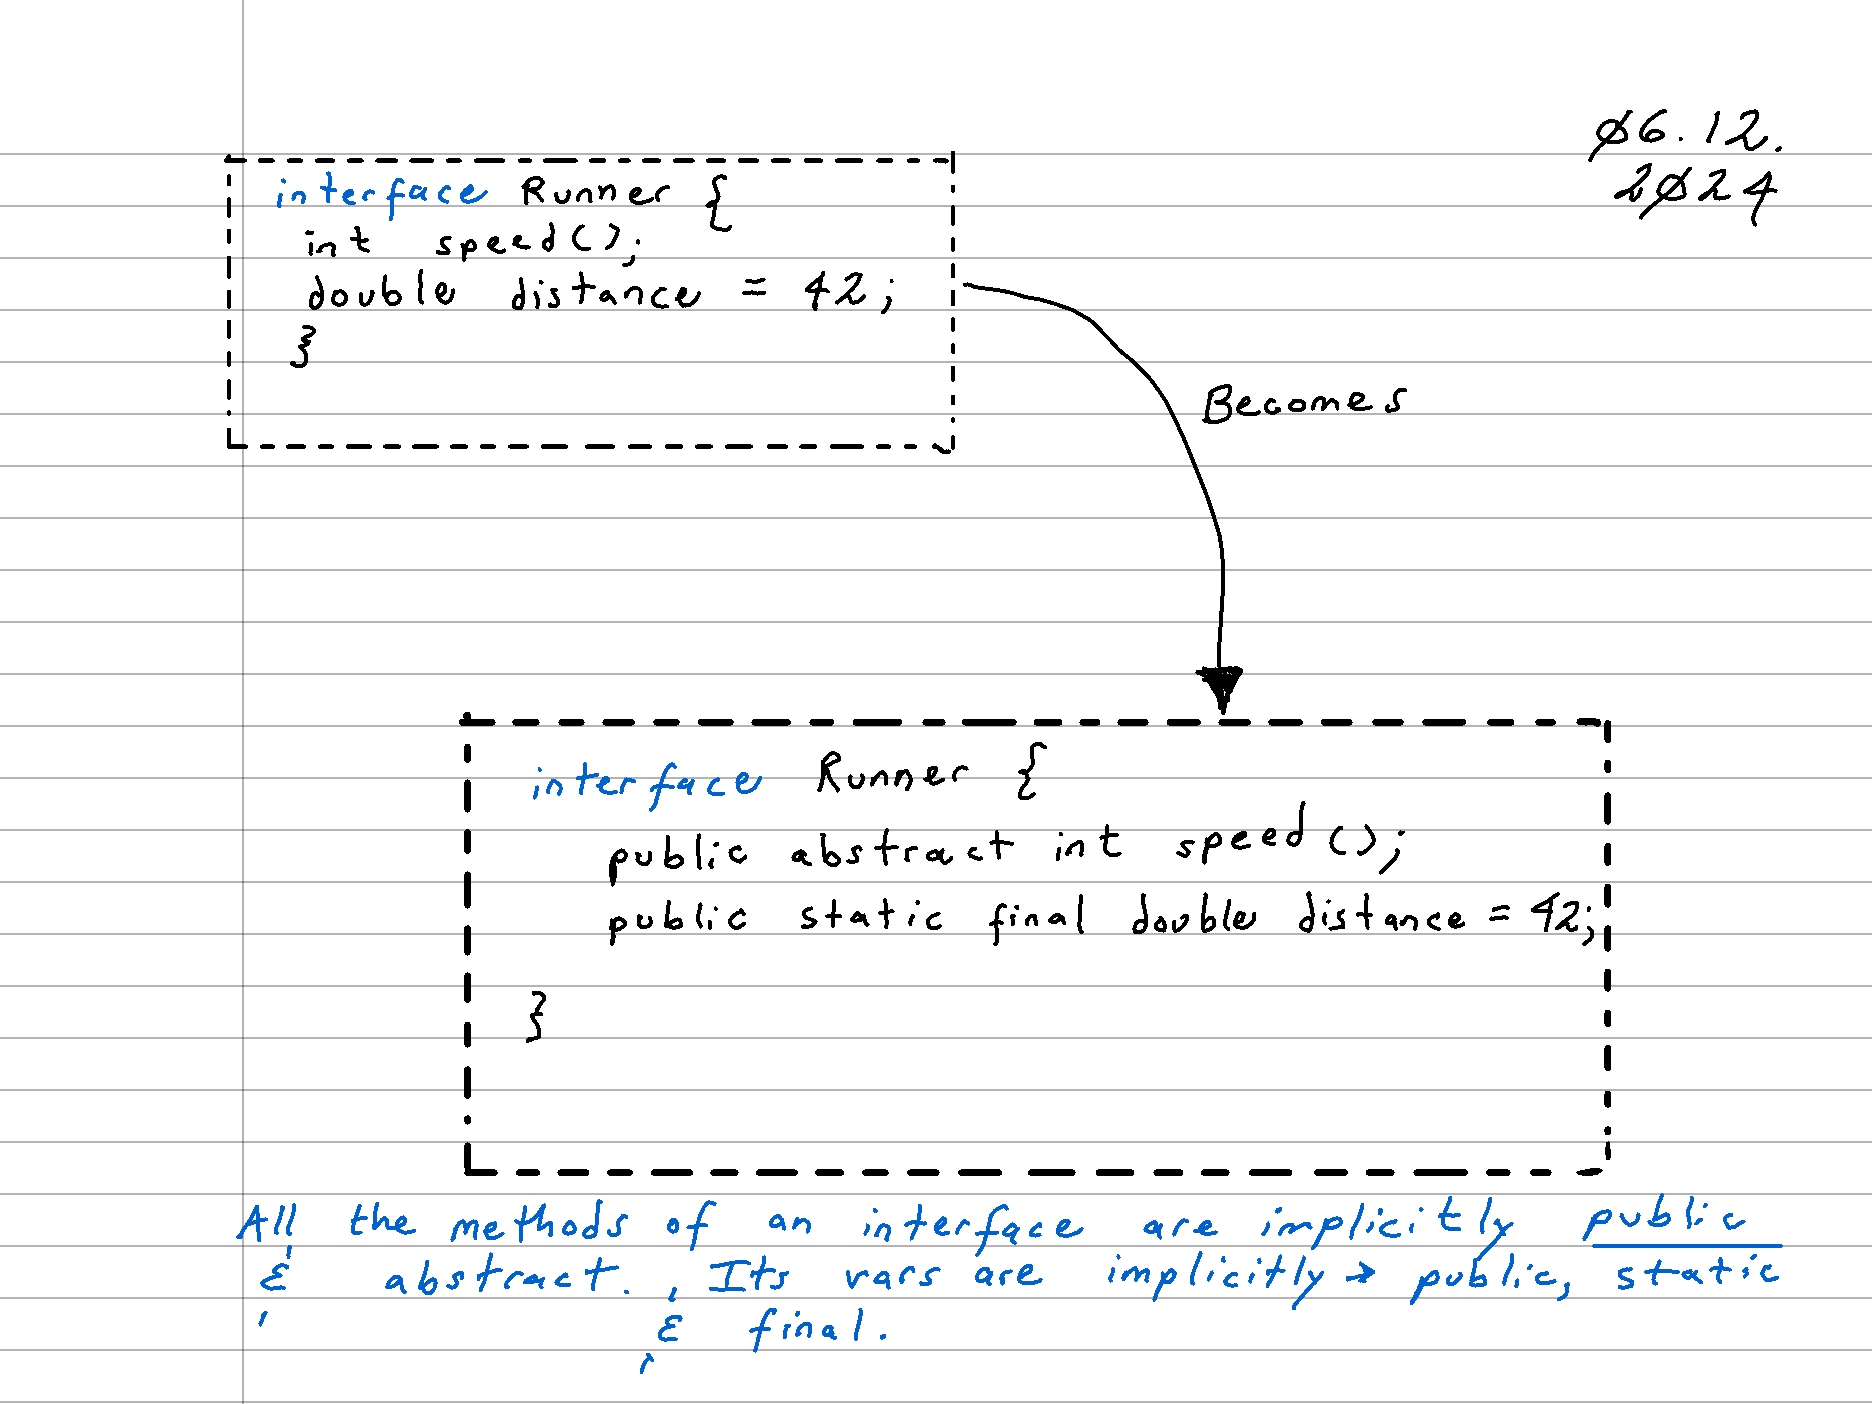 Ø6.12.
2Ø24
interface Runner {
int speed();
double distance = 42;
}
Becomes
interface Runner {
public abstract int speed();
public static final double distance = 42;
}
All the methods of an interface are implicitly public
& abstract. , Its vars are implicitly → public, static
& final.